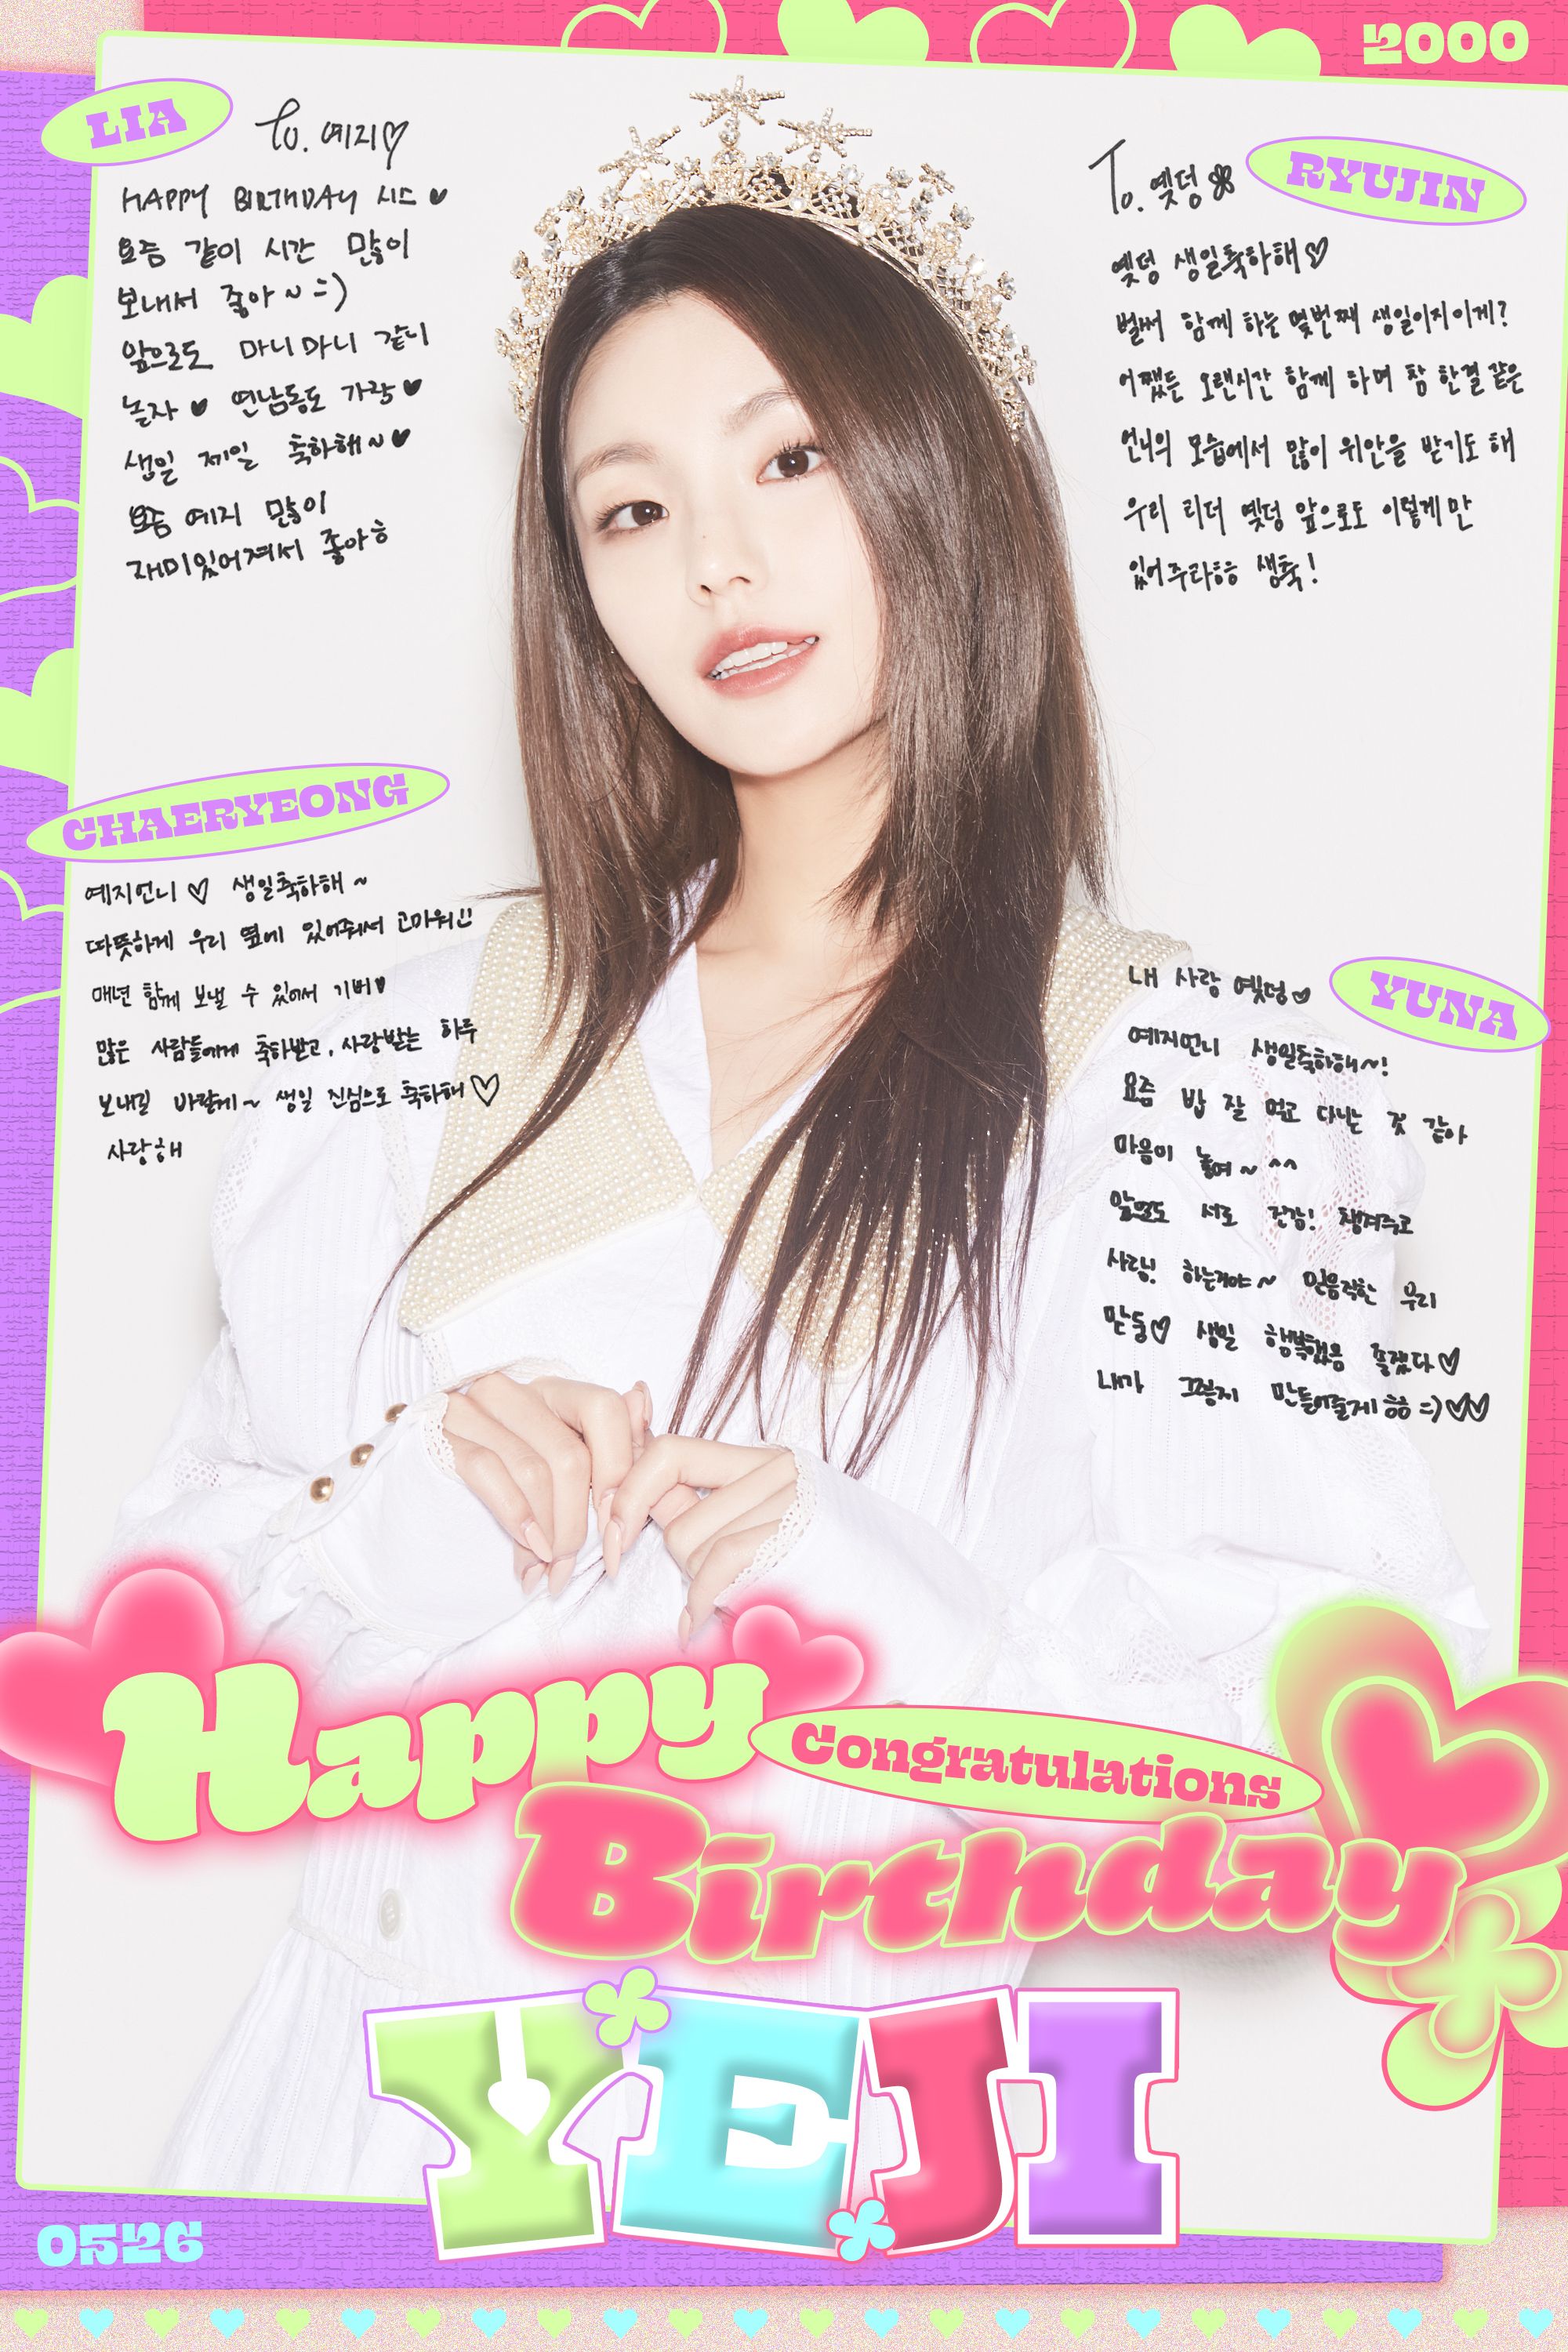 2000
LIA
To. 예지♡
HAPPY BIRTHDAY 시스♥
요즘 같이 시간 많이
보내서 좋아~=)
앞으로도 마니마니 같니
놀자♥ 연남동도 가랑♥
생일 제일 축하해~♥
요즘 예지 많이
재미있어져서 좋아ㅎ
RYUJIN
To. 옛덩
옛덩 생일축하해♡
벌써 함께 하는 몇번째 생일이지이게?
어쨌든 오랜시간 함께 하며 참 한결 같은
언니의 모습에서 많이 위안을 받기도 해
우리 리더 옛덩 앞으로도 이렇게만
있어주라ㅎㅎ 생축!
CHAERYEONG
예지언니♡ 생일축하해~
따뜻하게 우리 옆에 있어줘서 고마워!!
매년 함께 보낼 수 있어서 기버♥
많은 사람들에게 축하받고, 사랑받는 하루
보내길 바랄게~ 생일 진심으로 축하해♡
사랑해
YUNA
내 사랑 옛덩♡
예지언니 생일축하해~!
요즘 밥 잘 먹고 다니는 것 같아
마음이 놓여~^^
앞으로도 서로 건강! 챙겨주고
사랑! 하는거야~ 믿음직한 우리
만둥♡ 생일 행복했음 좋겠다♡
내가 그렇게 만들어줄게ㅎㅎ=)♡♡
Happy
Congratulations
Birthday
YEJI
0526